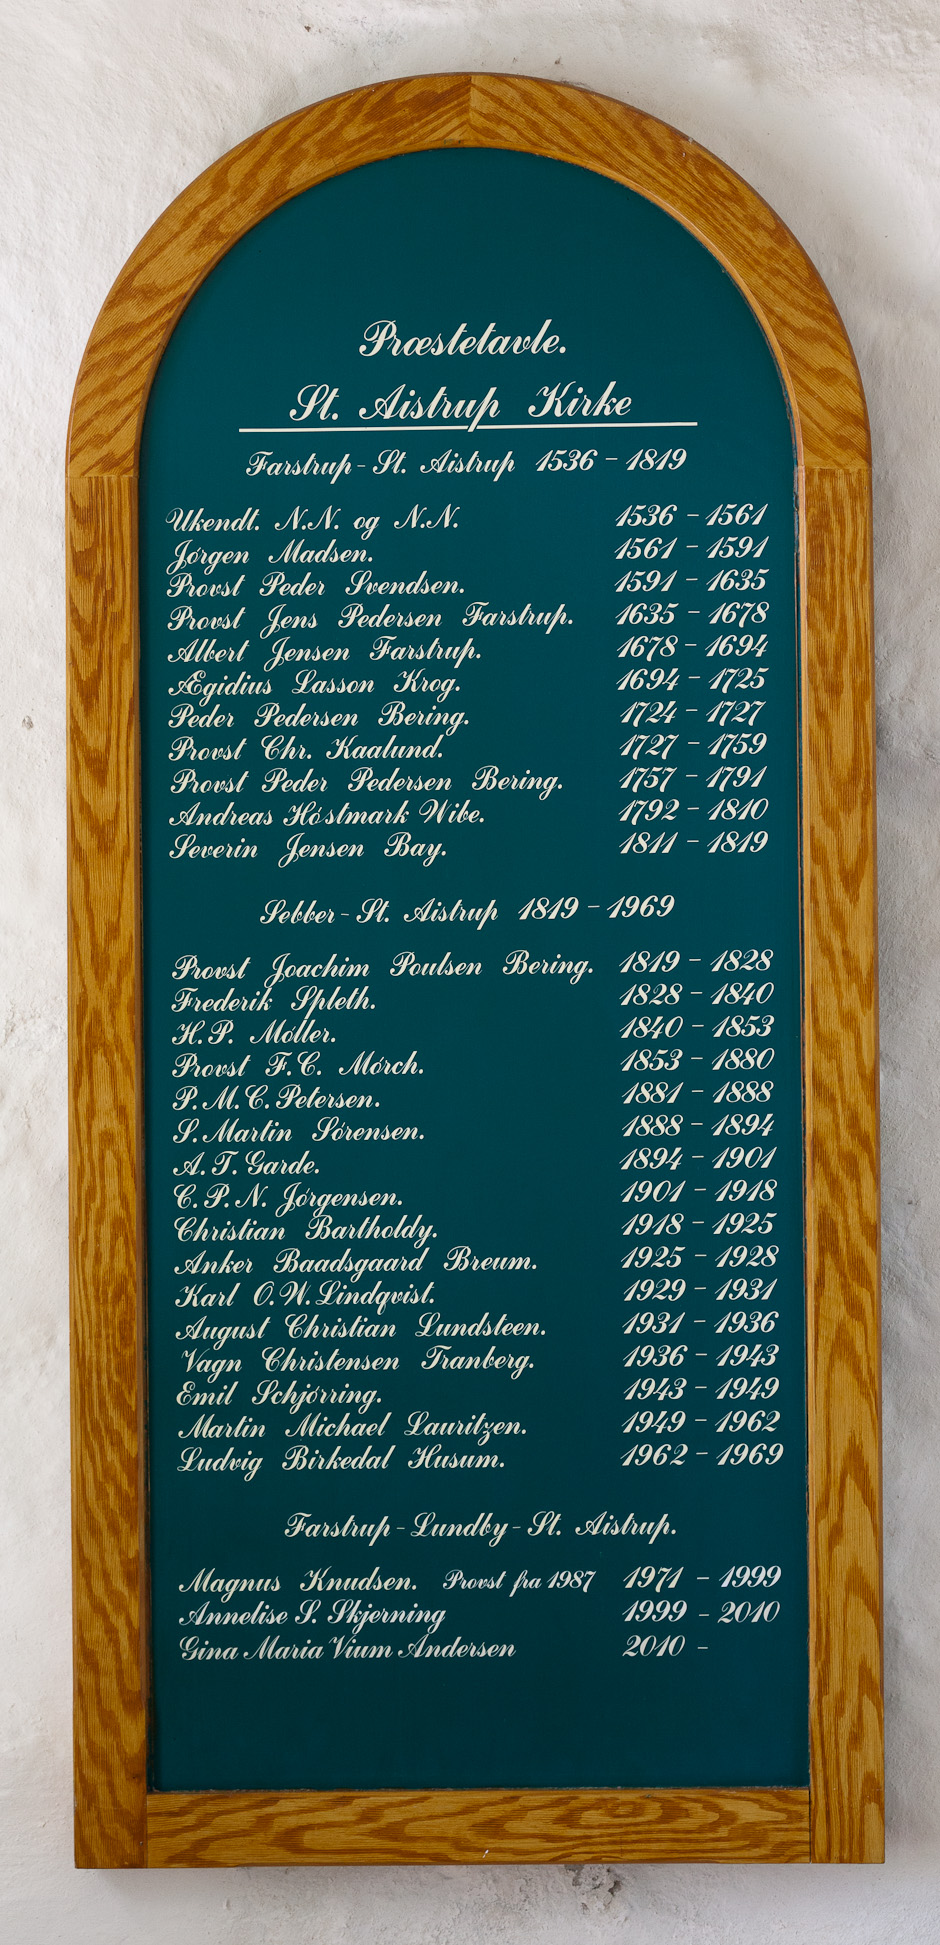 Præstetavle.
St. Aistrup Kirke
Farstrup - St. Aistrup 1536 - 1819
Ukendt. N.N. og N.N. 1536 - 1561
Jørgen Madsen. 1561 - 1591
Provst Peder Svendsen. 1591 - 1635
Provst Jens Pedersen Farstrup. 1635 - 1678
Albert Jensen Farstrup. 1678 - 1694
Ægidius Lasson Krog. 1694 - 1725
Peder Pedersen Bering. 1724 - 1727
Provst Chr. Kaalund. 1727 - 1759
Provst Peder Pedersen Bering. 1757 - 1791
Andreas Høstmark Wibe. 1792 - 1810
Severin Jensen Bay. 1811 - 1819
Sebber - St. Aistrup 1819 - 1969
Provst Joachim Poulsen Bering. 1819 - 1828
Frederik Spleth. 1828 - 1840
H.P. Møller. 1840 - 1853
Provst F.C. Mørch. 1853 - 1880
P.M.C. Petersen. 1881 - 1888
S. Martin Sørensen. 1888 - 1894
A.T. Garde. 1894 - 1901
C.P.N. Jørgensen. 1901 - 1918
Christian Bartholdy. 1918 - 1925
Anker Baadsgaard Breum. 1925 - 1928
Karl O.W. Lindqvist. 1929 - 1931
August Christian Lundsteen. 1931 - 1936
Vagn Christensen Tranberg. 1936 - 1943
Emil Schjørring. 1943 - 1949
Martin Michael Lauritzen. 1949 - 1962
Ludvig Birkedal Husum. 1962 - 1969
Farstrup - Lundby - St. Aistrup.
Magnus Knudsen. Provst fra 1987 1971 - 1999
Annelise S. Skjerning 1999 - 2010
Gina Maria Vium Andersen 2010 -